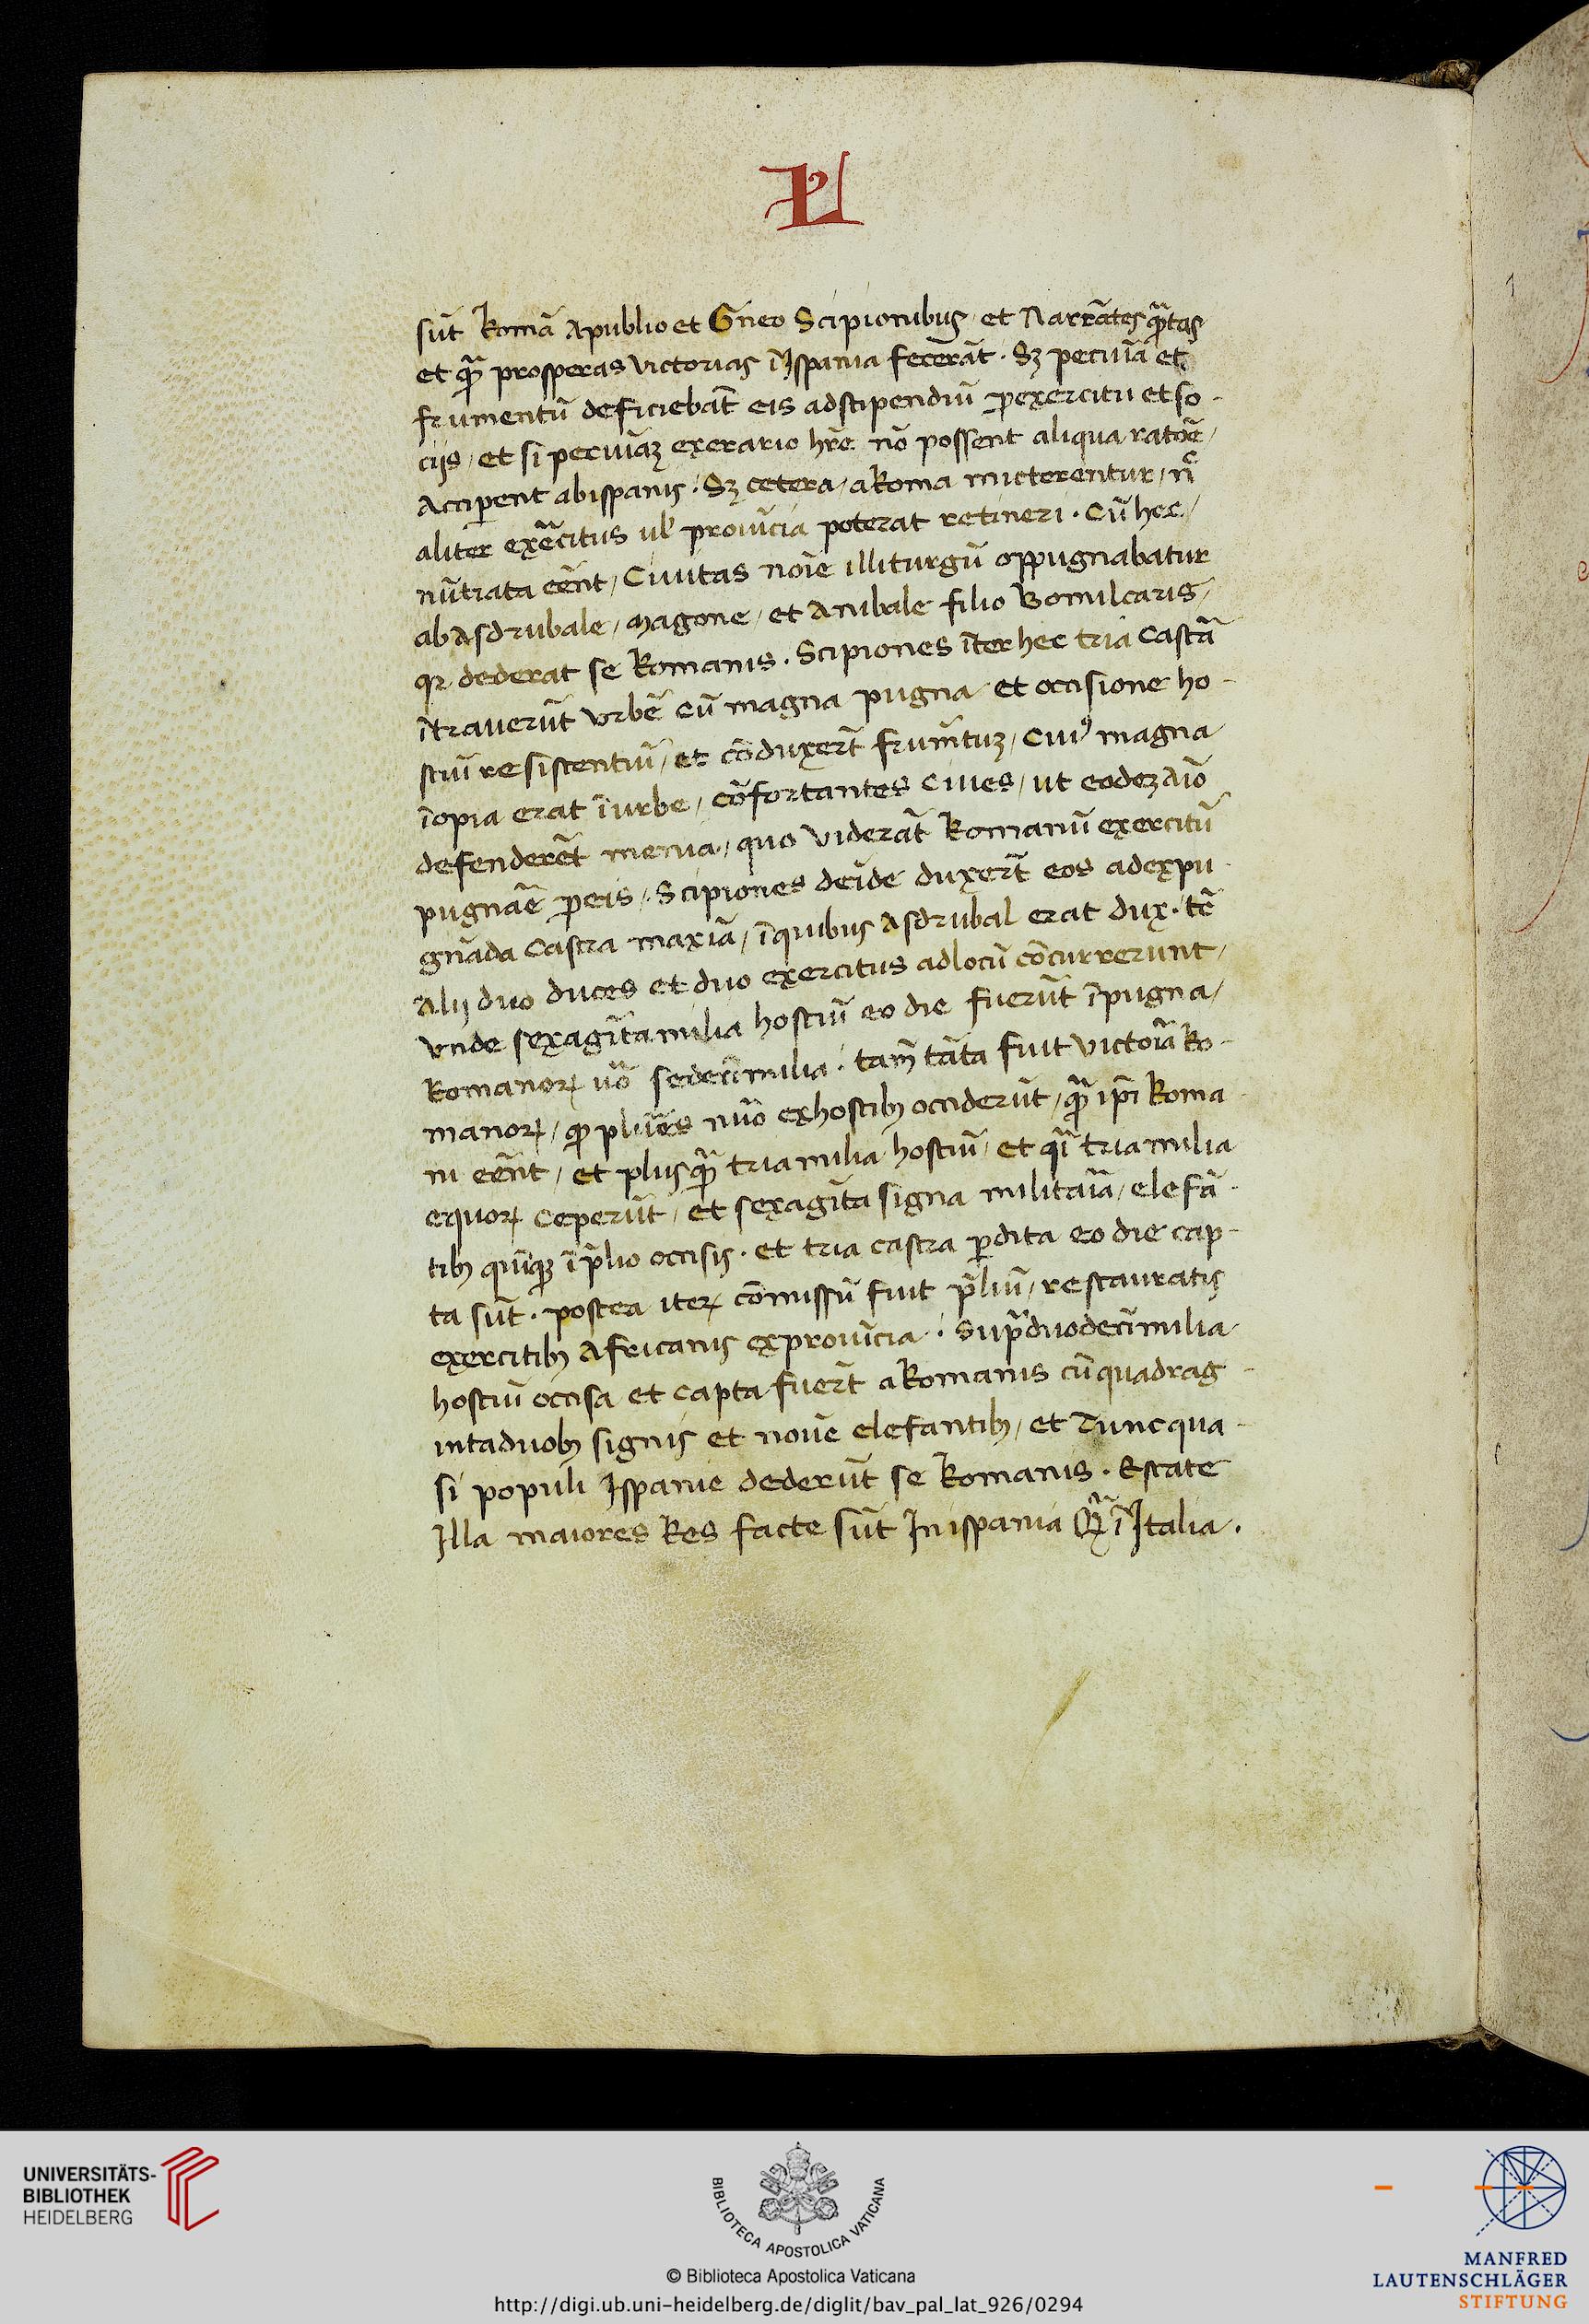 sũt Romã apublio et Gneo Scipionibus et Narrãtes q̃tas
et q̃ prosperas victorias ĩ Ispania fecerãt. Sꝫ pecuiã et
frumentũ deficiebãt eis adstipendiũ ꝓexercitu et so-
ciis / et si pecuiãꝫ exerario hr̃e nõ possent aliqua ratõe /
Acciperent abispanis. Sꝫ cetera / aRoma micterentur / nͨ
aliter exẽcitus ul̛ prouĩcia poterat retineri. Cũ hec /
nũtrata eẽnt / Ciuitas noĩe illiturgũ oppugnabatur
ab Asdrubale / Magone / et Anibale filio Bomilcaris /
qꝛ dederat se Romanis. Scipiones ĩter hec tria Castrã
ĩtrauerũt vrbẽ cũ magna pugna et occisione ho-
stiũ resistentiũ / et cõduxerũt frumẽtuꝫ / cuiꝰ magna
ĩopia erat ĩ urbe / cõfortantes Ciues / ut eodeꝫ aĩo
defenderẽt menia / quo viderãt Romanũ exercitũ
pugnãe ꝓeis / Scipiones deĩde duxerũt eos adexpu
gnãda castra maxiã / ĩ quibus Asdrubal erat dux. tc̃
Alij duo duces et duo exercitus adlocũ cõcurrerunt /
vnde sexagĩta milia hostiũ eo die fuerũt ĩ pugna /
Romanoꝝ uõ sedecĩ milia. tam̃ tãta fuit victorĩa Ro-
manoꝝ / ꝙ plures nũo exhostibꝫ occiderũt / q̃ ip̃i Roma
ni eẽnt / et plus q̃ tria milia hostiũ / et q̃ tria milia
equoꝝ ceperũt / et sexagĩta signa militaĩa / elefã-
tibꝫ quĩqꝫ ĩ p̃lio occisis. et tria castra ꝑdita eo die cap-
ta sũt. postea iteꝝ cõmissũ fuit p̃liũ / restauratis
exercitibꝫ Africanis exprouĩcia. Supᷓ duodecĩ milia
hostiũ occisa et capta fuerũt aRomanis cũ quadrag-
intaduobꝫ signis et nouẽ elefantibꝫ / et Tunc qua-
si populi Ispanie dederũt se Romanis. Estate
Illa maiores Res facte sũt In ispania Q̃ ĩ Italia.
UNIVERSITÄTS-
BIBLIOTHEK
HEIDELBERG
BIBLIOTECA APOSTOLICA VATICANA
© Biblioteca Apostolica Vaticana
http://digi.ub.uni-heidelberg.de/diglit/bav_pal_lat_926/0294
MANFRED
LAUTENSCHLÄGER
STIFTUNG